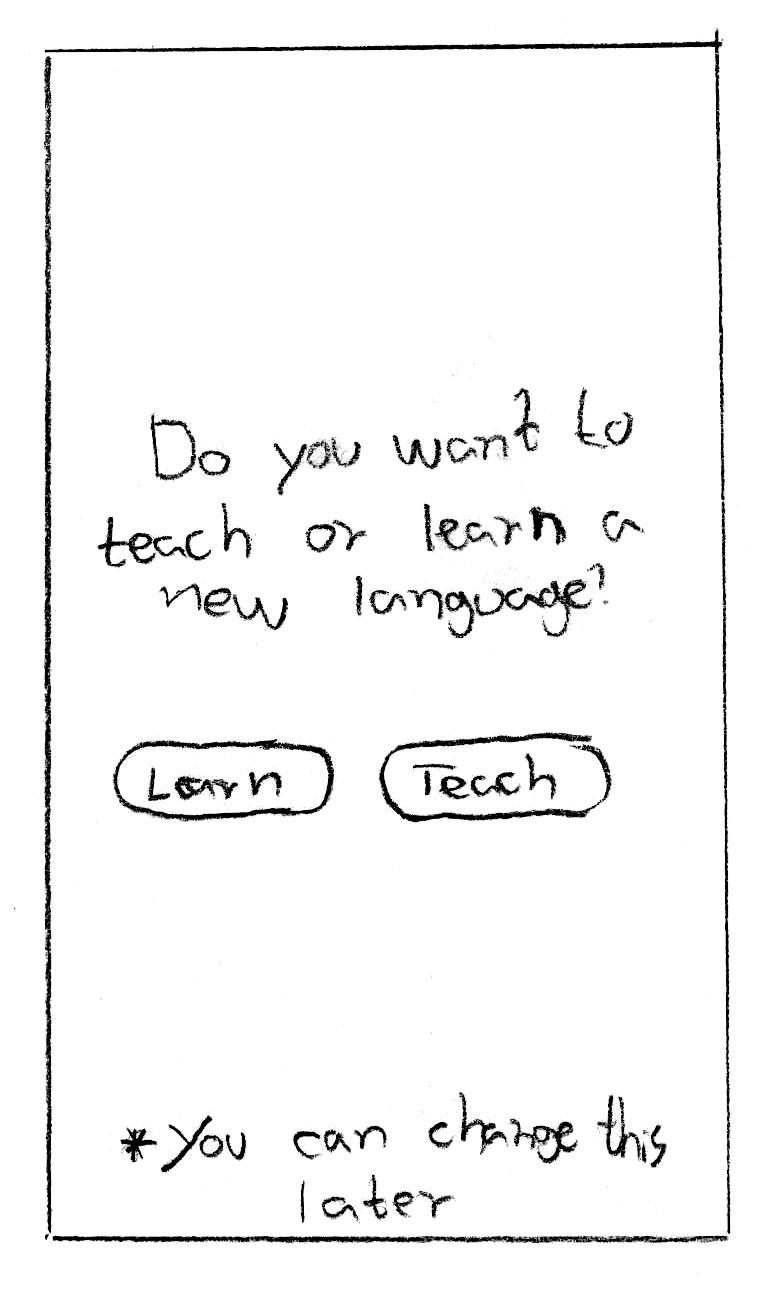 Do you want to
teach or learn a
new language?
Learn
Teach
*You can change this
later